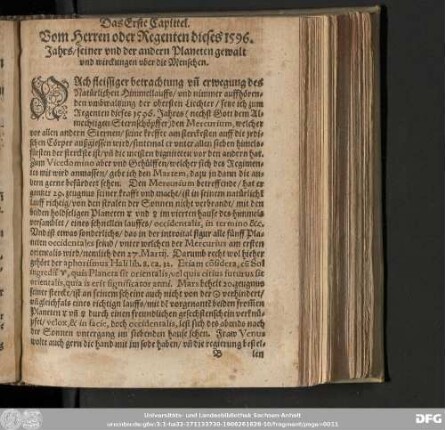 Das Erste Capittel.
Vom Herren oder Regenten dieses 1596.
Jahrs/seiner vnd der andern Planeten gewalt
vnd wirckungen vber die Menschen.
NAch fleissiger betrachtung vñ erwegung des
Natürlichen Himmellauffs/vnd nimmer auffhören-
den vmbwaltzung der obersten Liechter/setze ich zum
Regenten dieses 1596. Jahres/nechst Gott dem Al-
mechtigen Sternschöpffer)den Mercurium, welcher
vor allen andern Sternen/seine kreffte am sterckesten auff die jrdi-
schen Cörper außgiessen wird/sintemal er vnter allen sieben himels-
fürsten der sterckste ist/vñ die meisten digniteten vor den andern hat.
Zum Vicedomino aber vnd Gehülffen/welcher sich des Regimen-
tes mit wird anmassen/gebe ich den Martem, dazu jn dann die an-
dern gerne befürdert sehen. Den Mercurium betreffende/hat er
gantzer 29. zeugnus seiner krafft vnd macht/ist in seinem natürlichē
lauff richtig/von den stralen der Sonnen nicht verbrandt/mit den
beiden holdseligen Planeten ♃ vnd ♀ im vierten hause des himmels
versamblet/eines schnellen lauffes/occidentalis, in termino &c.
Vnd ist etwas sonderliche/das in der introital figur alle fünff Pla-
neten occidentales seind/vnter welchen der Mercurius am ersten
orientalis wird/nemlich den 27. Martij. Darumb recht wol hieher
gehört der aphorismus Hali lib. 8. ca. 32. Etiam cōsidera, cū Sol
ingredit' ♈, quis Planeta sit orientalis, vel quis citius futurus sit
orientalis, quia is erit significator anni. Mars behelt 20. zeugnus
seiner stercke/ist an seinem scheine auch nicht von der ☉ verhindert/
vñ gleichfals eines richtign lauffs/mit dē vorgenantē beiden frommen
Planeten ♃ vñ ♀ durch einen freundlichen gesechstenschein verknü-
pfet/velox, & in facie, doch occidentalis, lest sich des abends nach
der Sonnen vntergang im siebenden hause sehen. Fraw Venus
wolte auch gern die hand mit im sode haben/vñ die regierung bestel-
B len
Universitäts- und Landesbibliothek Sachsen-Anhalt
DFG